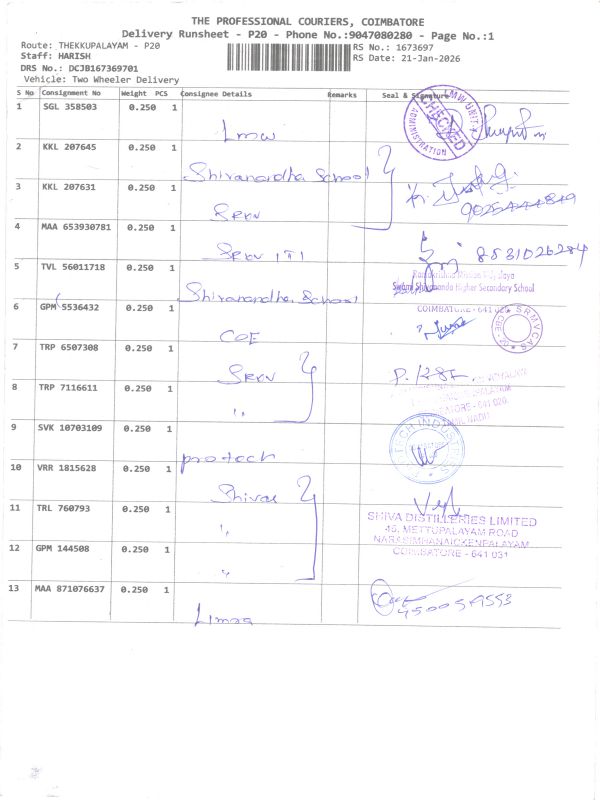 THE PROFESSIONAL COURIERS, COIMBATORE
Delivery Runsheet - P20 - Phone No.:9047080280 - Page No.:1
Route: THEKKUPALAYAM - P20
RS No.: 1673697
Staff: HARISH
RS Date: 21-Jan-2026
DRS No.: DCJB167369701
Vehicle: Two Wheeler Delivery
S No Consignment No Weight PCS Consignee Details Remarks Seal & Signature
1 SGL 358503 0.250 1 Lmw
LMW UNIT CHECKED ADMINISTRATION
2 KKL 207645 0.250 1 Shivanandha School
3 KKL 207631 0.250 1 SRKV
4 MAA 653930781 0.250 1 SRKV ITI
8531026284
5 TVL 56011718 0.250 1 Shivanandha School
Ramakrishna Mission Vidyalaya
Swami Shivananda Higher Secondary School
COIMBATORE - 641 020
6 GPM 5536432 0.250 1 COE
SRMVCAS
7 TRP 6507308 0.250 1 SRKV
8 TRP 7116611 0.250 1 "
9 SVK 10703109 0.250 1 protech
10 VRR 1815628 0.250 1 Shiva
11 TRL 760793 0.250 1 "
SHIVA DISTILLERIES LIMITED
45, METTUPALAYAM ROAD
NARASIMHANAICKENPALAYAM
COIMBATORE - 641 031
12 GPM 144508 0.250 1 "
13 MAA 871076637 0.250 1 Limra